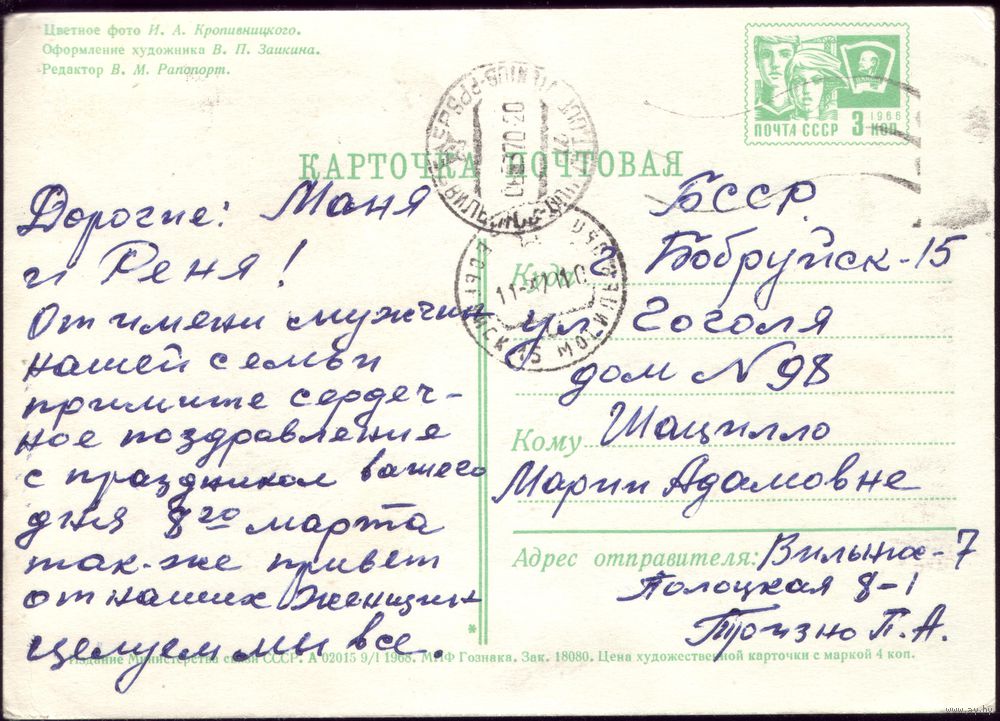 Цветное фото И. А. Кропивницкого.
Оформление художника В. П. Заикина.
Редактор В. М. Рапопорт.
ПОЧТА СССР 3 коп.
1966
КАРТОЧКА ПОЧТОВАЯ
Дорогие: Маня
и Реня!
От имени мужчин
нашей семьи
примите сердеч-
ное поздравления
с праздником вашего
дня 8го марта
так-же привет
от наших женщин
целуем мы все.
Куда г Бобруйск-15
БССР
ул Гоголя
дом N 98
Кому Шацилло
Марии Адамовне
Адрес отправителя: Вильнюс-7
Полоцкая 8-1
Тризно П.А.
Издание Министерства связи СССР. А 02015 9/I 1968. МПФ Гознака. Зак. 18080. Цена художественной карточки с маркой 4 коп.
www.ay.by